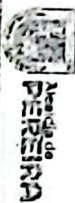 Alcaldía de
PEREIRA